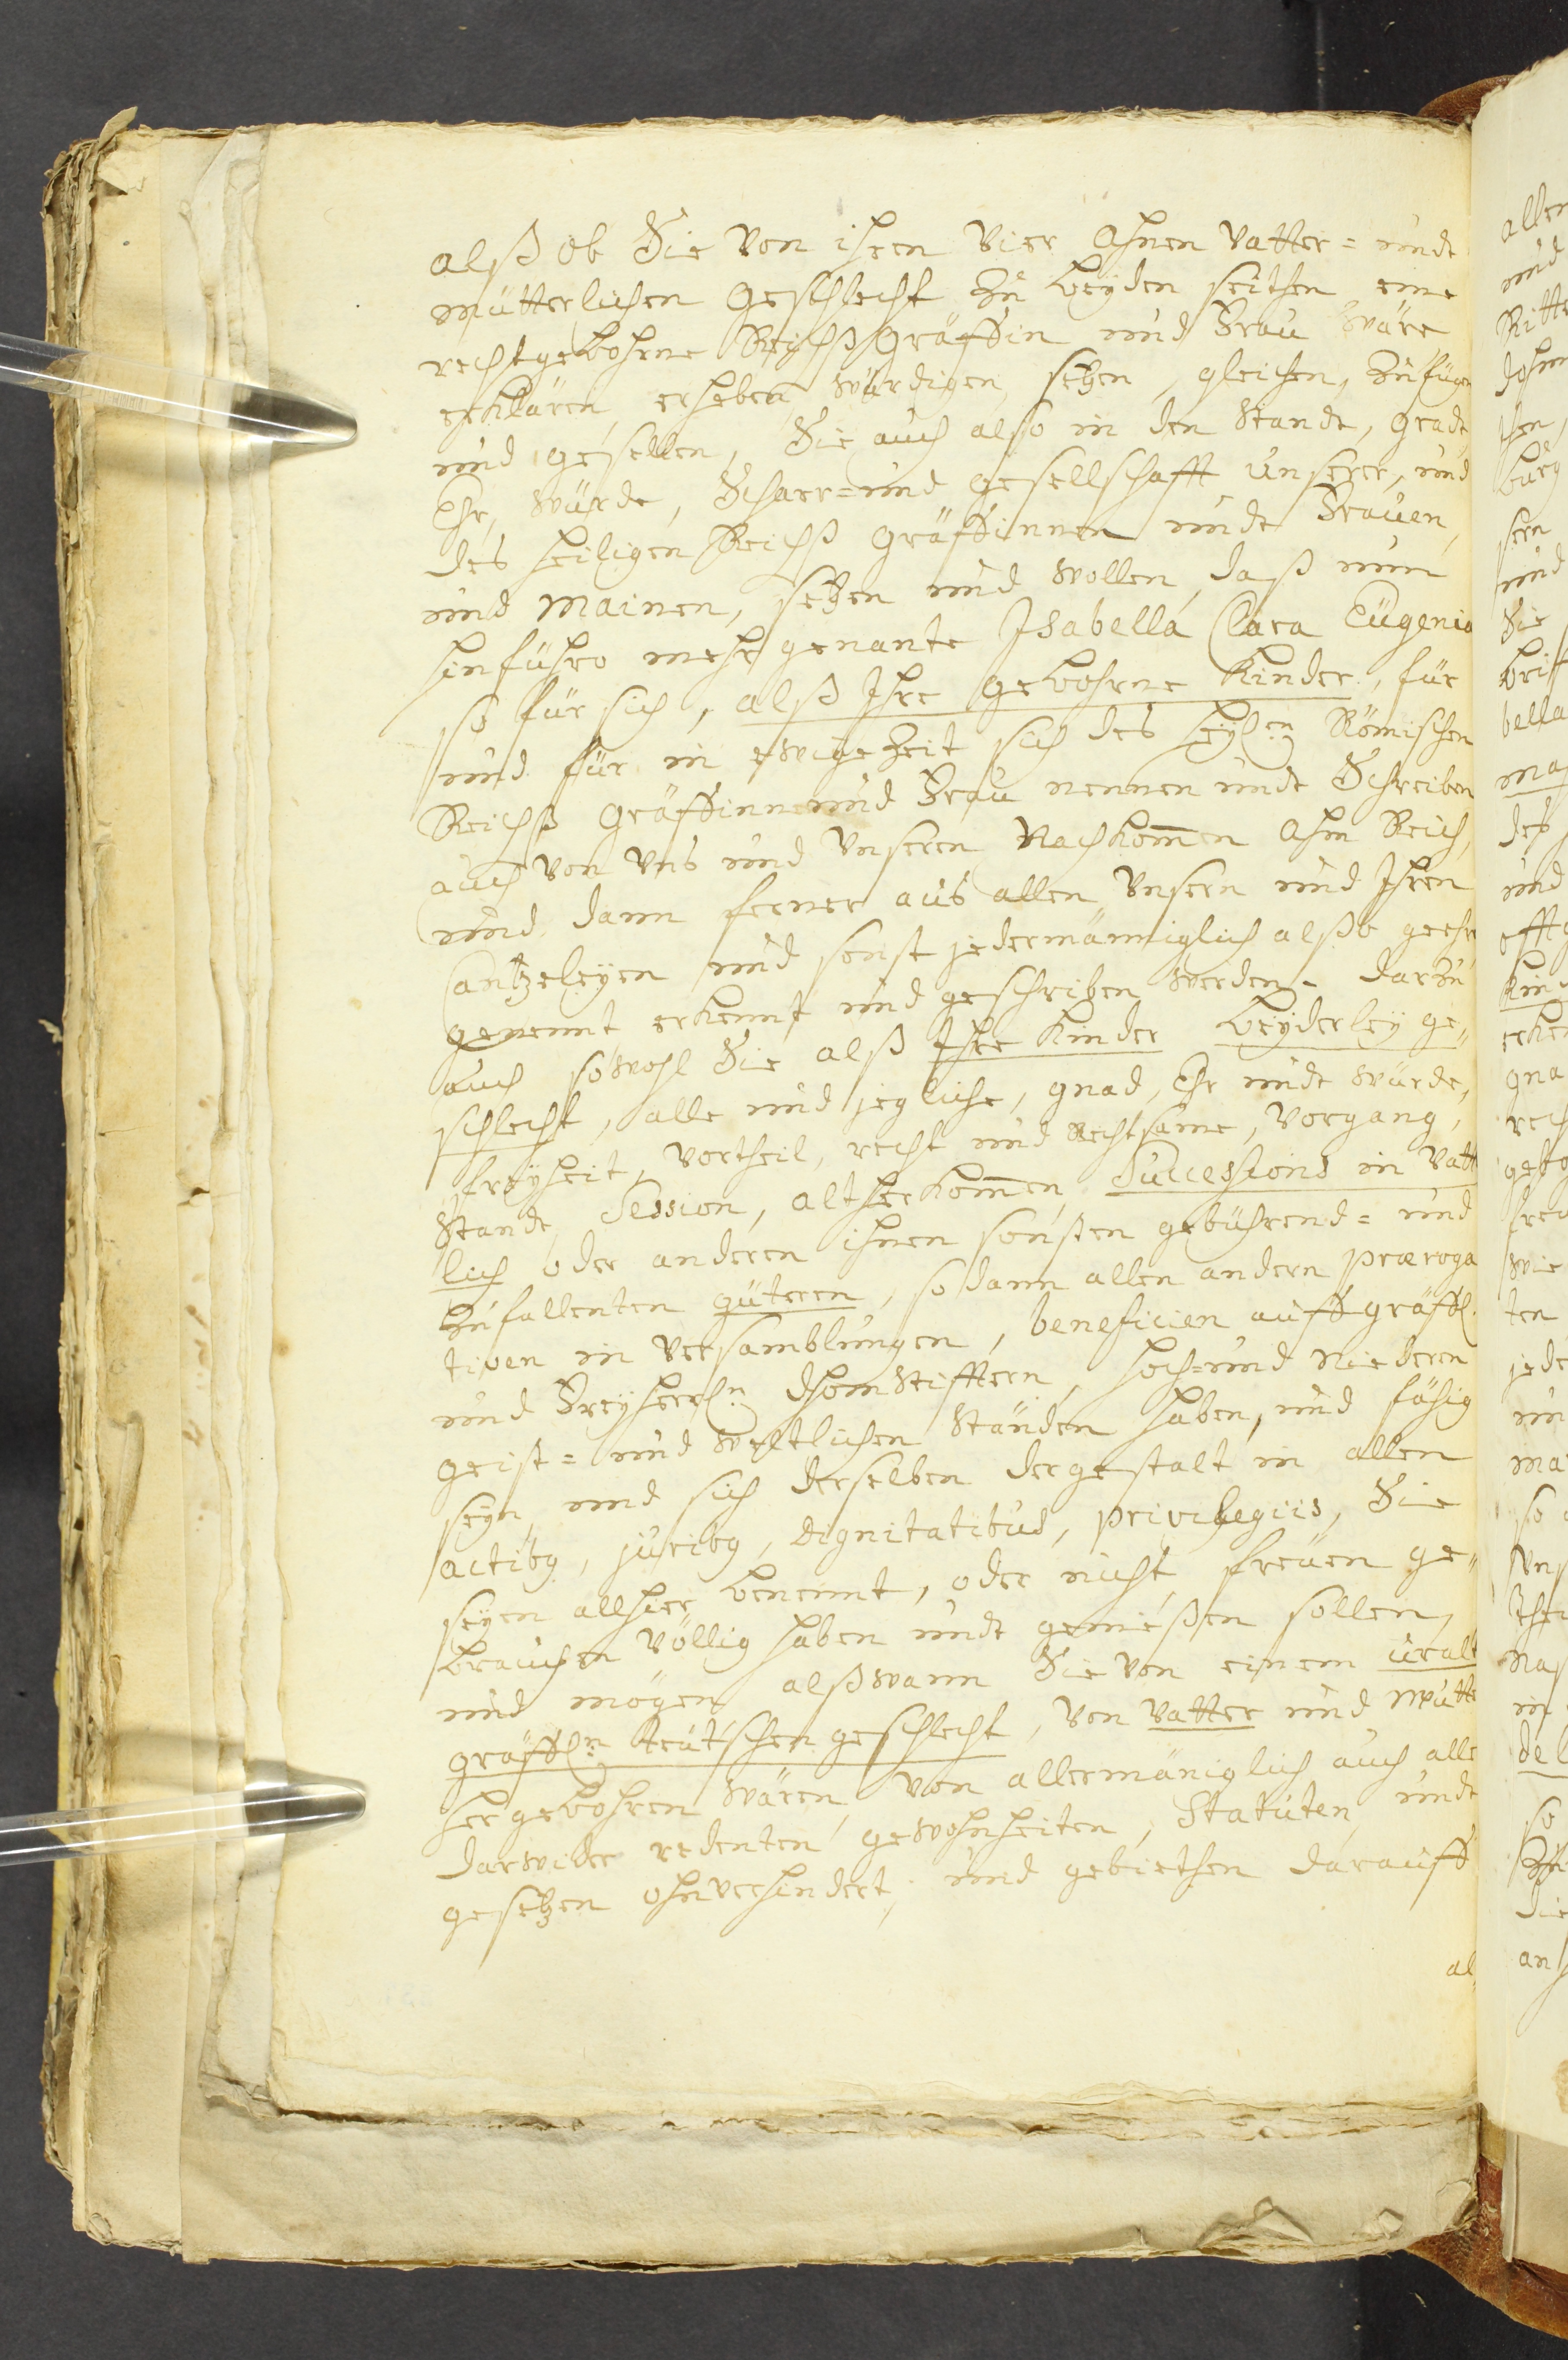 alß ob Sie von ihren vier Ahnen Vatter= undt
mütterlichen Geschlecht zu beyden seithen eine
rechtgebohrne Reichß Gräffin und Frau wäre
erklären, erheben, würdigen, setzen, gleichen, zufügen
und gesellen, Sie auch also in den Standt, gradt
Ehr, würde, Schaar= und gesellschafft unserer, und
des heiligen Reichß Gräffinnen undt Frauen,
und mainen, setzen und wollen, daß nun
hinführo mehr genante Isabella Clara Eugenia
so für sich, alß Ihre gebohrne Kinder, für
und für in ewige Zeit sich des heyl:n Römischen
Reichß Gräffinne und Frau nennen undt Schreiben
auch von Uns und Unseren Nachkom̄en ahm Reich,
und dann ferner aus allen Unsern und Ihren
Cantzeleyen und sonst jedermänniglich alßo geehrt
genennt erkennt und geschriben werden. darzu
auch sowohl Sie alß Ihre Kinder beyderley ge„
schlecht, alle und jegliche, gnad, Ehr undt würde,
freyheit, Vortheil, recht und Rechtsame, Vorgang,
Standt, Session, altherkom̄en, Successions in Vatt
lich oder anderen ihnen sonsten gebührend= und
zufallenten güteren, so dann allen andern præroga
tiven in Versamblungen, beneficien auff gräffl.
und Freyherrl:n Dhom Stifftern, hoch= und Niederen
geist= und weltlichen Ständen haben, und fähig
seyn, und sich derselben dergestalt in allen
actibg, juribg, dignitatibus, privilegiis, Sie
seyen allhier benennt, oder nicht, freuen ge„
brauchen völlig haben undt genießen sollen,
und mögen, alßwann Sie von einem uralt
gräffl:n teutschen geschlecht, von Vatter und Mutter
hergebohren wären, von allermäniglich auch alle
darwider redenten gewohnheiten, Statuten, undt
gesetzen ohnverhindert, und gebiethen darauff
al